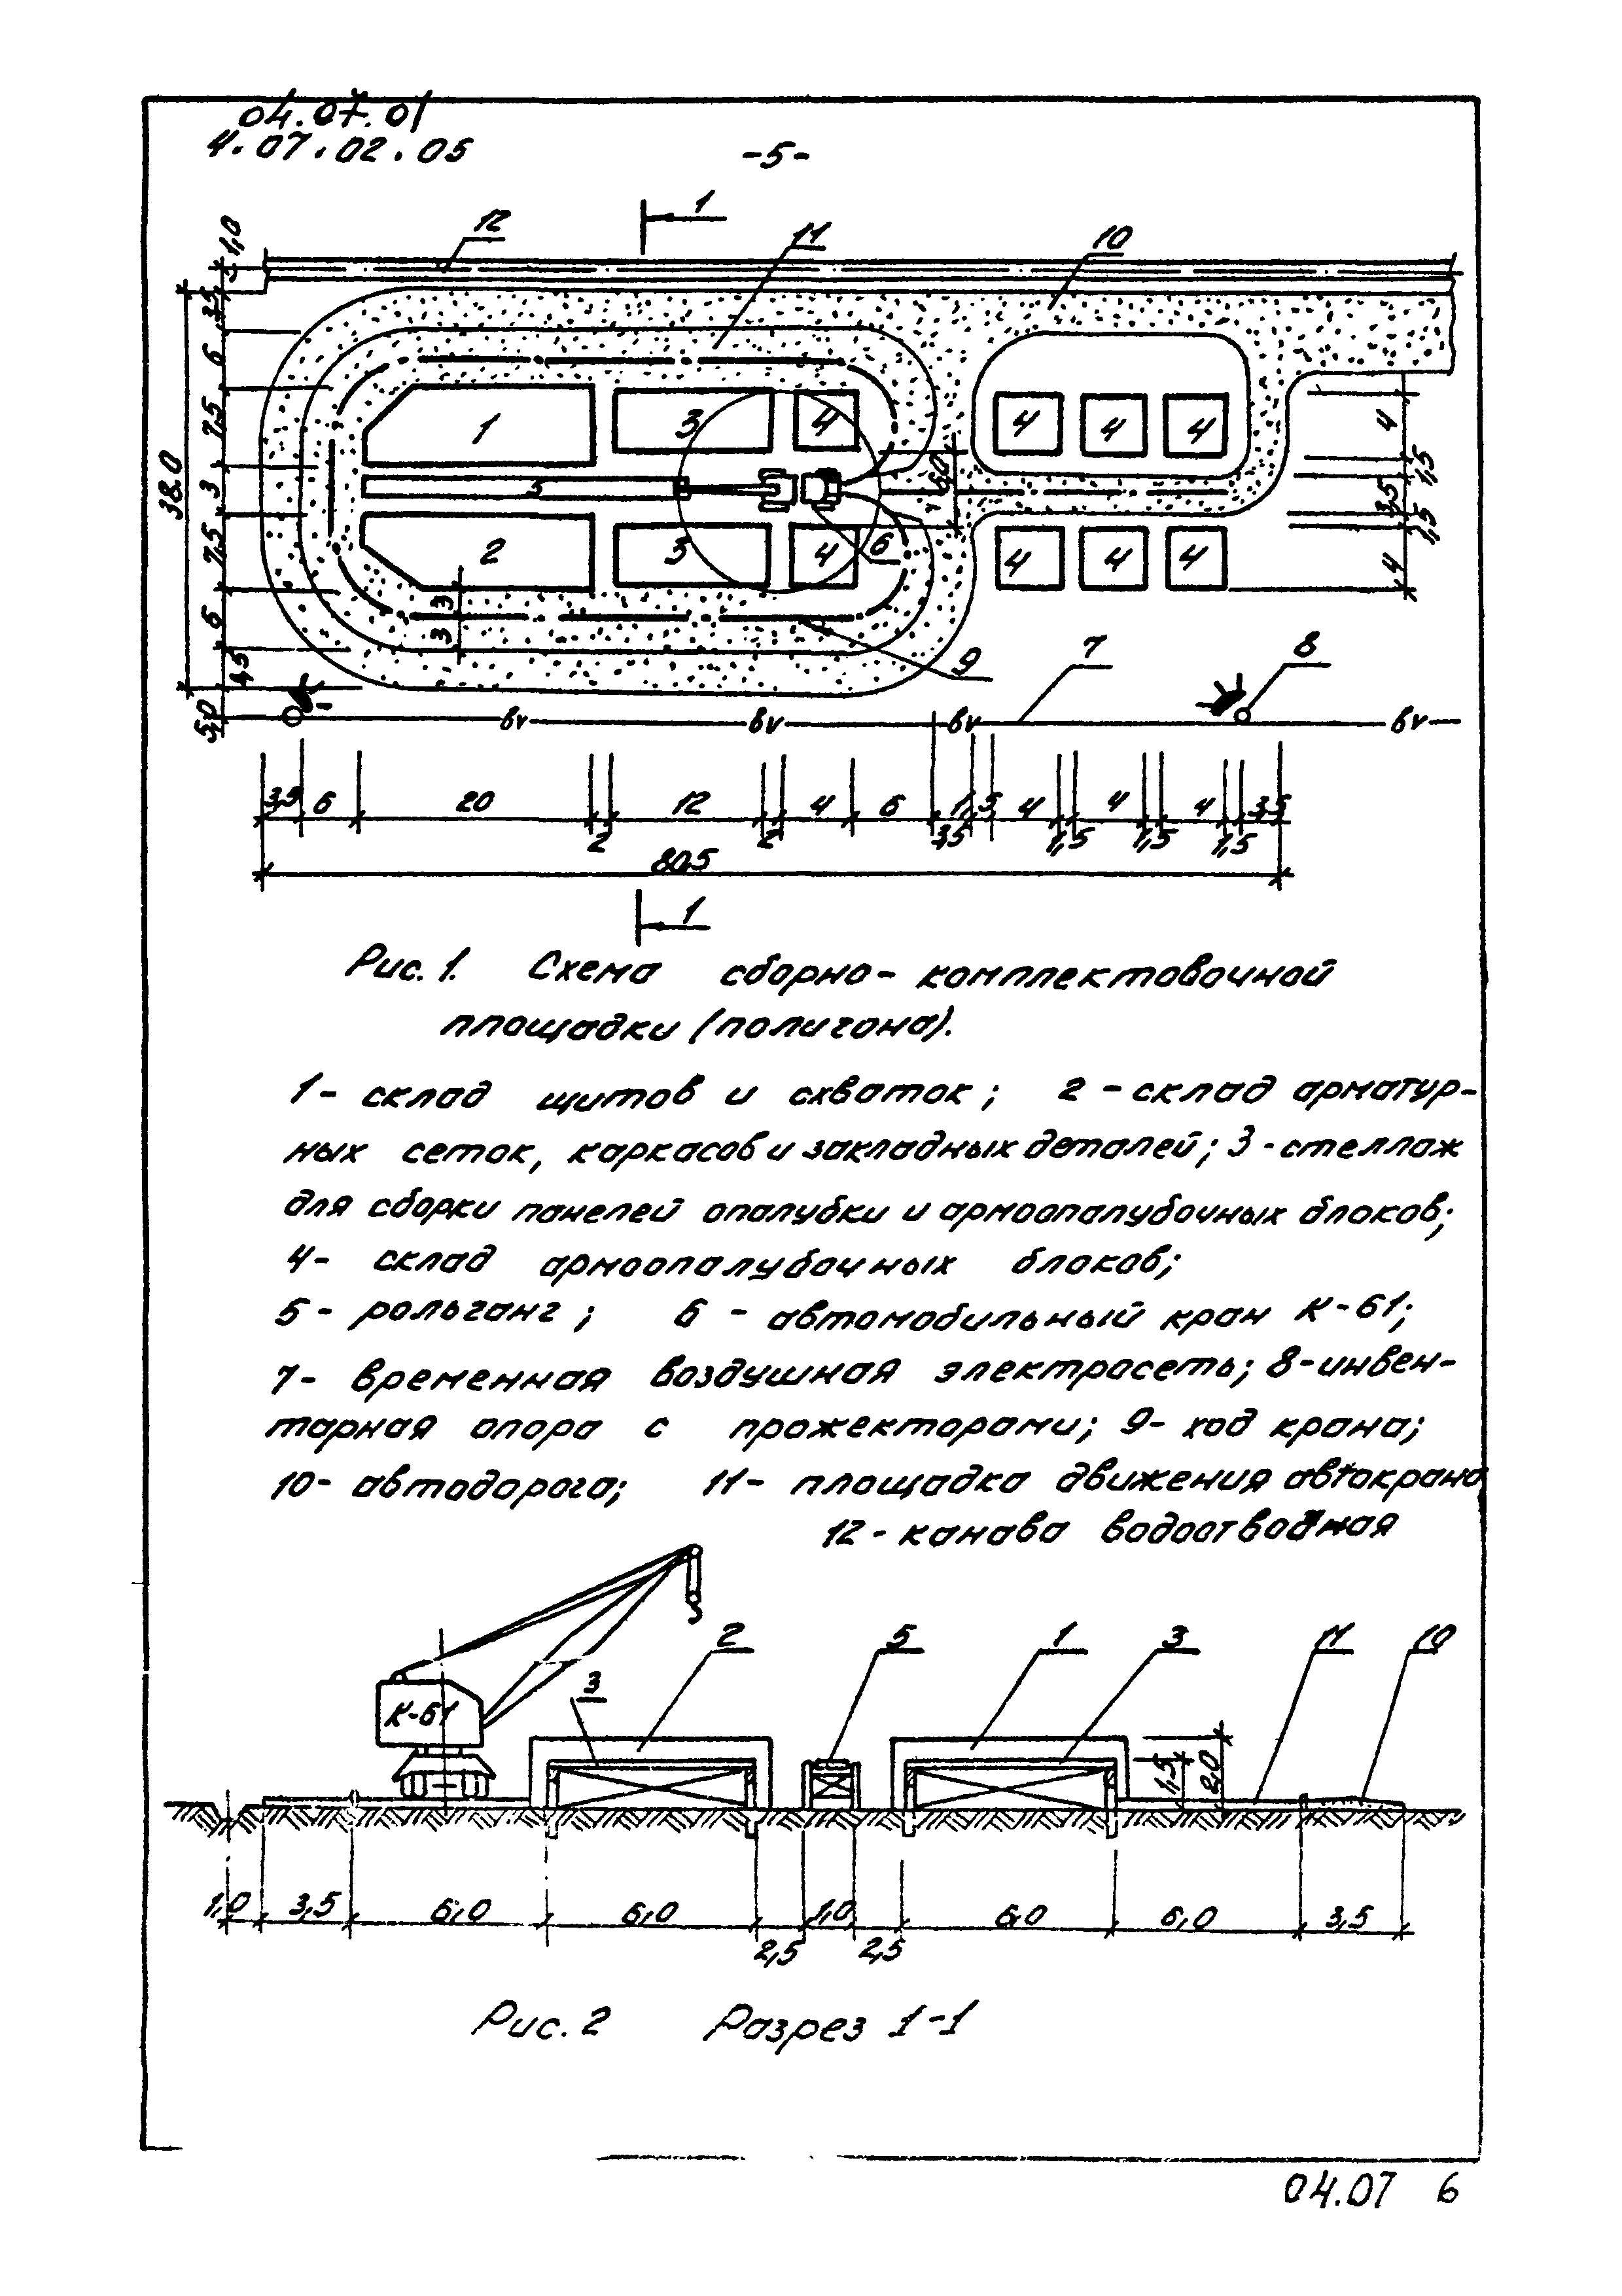 04.07.01
4.07.02.05
-5-
1
12
11
10
1,0
3,5
6
7,5
3
7,5
6
4,5
5,0
38.0
1
3
4
4
4
4
5
6,0
2
3
4
6
4
4
4
3
3
4
1,5
3,5
1,5
4
9
7
8
вv
вv
вv
вv
3,5
6
20
2
12
2
4
6
3,5
1,5
4
1,5
4
1,5
4
1,5
3,5
80,5
1
Рис. 1. Схема сборно-комплектовочной
площадки (полигона).
1- склад щитов и схваток; 2 - склад арматур-
ных сеток, каркасов и закладных деталей; 3 - стеллаж
для сборки панелей опалубки и армоопалубочных блоков;
4- склад армоопалубочных блоков;
5 - рольганг; 6 - автомобильный кран К-61;
7- временная воздушная электросеть; 8-инвен-
тарная опора с прожекторами; 9- ход крана;
10- автодорога; 11- площадка движения автокрана
12 - канава водоотводная
К-61
3
2
5
1
3
11
10
1,5
2,0
1,0
3,5
6,0
6,0
2,5
1,0
2,5
6,0
6,0
3,5
Рис. 2 Разрез 1-1
04.07 6